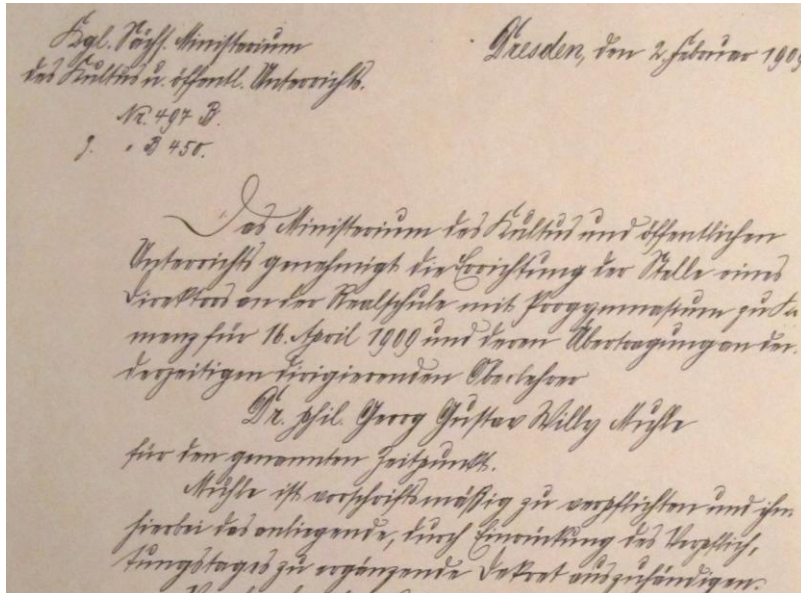 Kgl. Sächs. Ministerium
des Kultus u. öffentl. Unterrichts.
Dresden, den 2. Februar 1909
Nr. 497 B.
J. " B 450.
Das Ministerium des Kultus und öffentlichen
Unterrichts genehmigt die Errichtung der Stelle eines
Direktors an der Realschule mit Progymnasium zu Ka
menz für 16. April 1909 und deren Übertragung an den
derzeitigen dirigierenden Oberlehrer
Dr. phil. Georg Gustav Willy Muhle
für den genannten Zeitpunkt.
Muhle ist vorschriftsmäßig zu verpflichten und ihm
hierbei das anliegende, durch Einrückung des Verpflich-
tungstages zu ergänzende Dekret auszuhändigen.